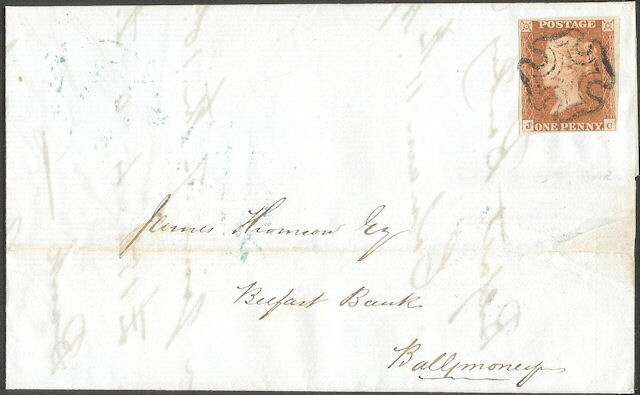 POSTAGE
J C
ONE PENNY
James Thomson Esq
Belfast Bank
Ballymoney